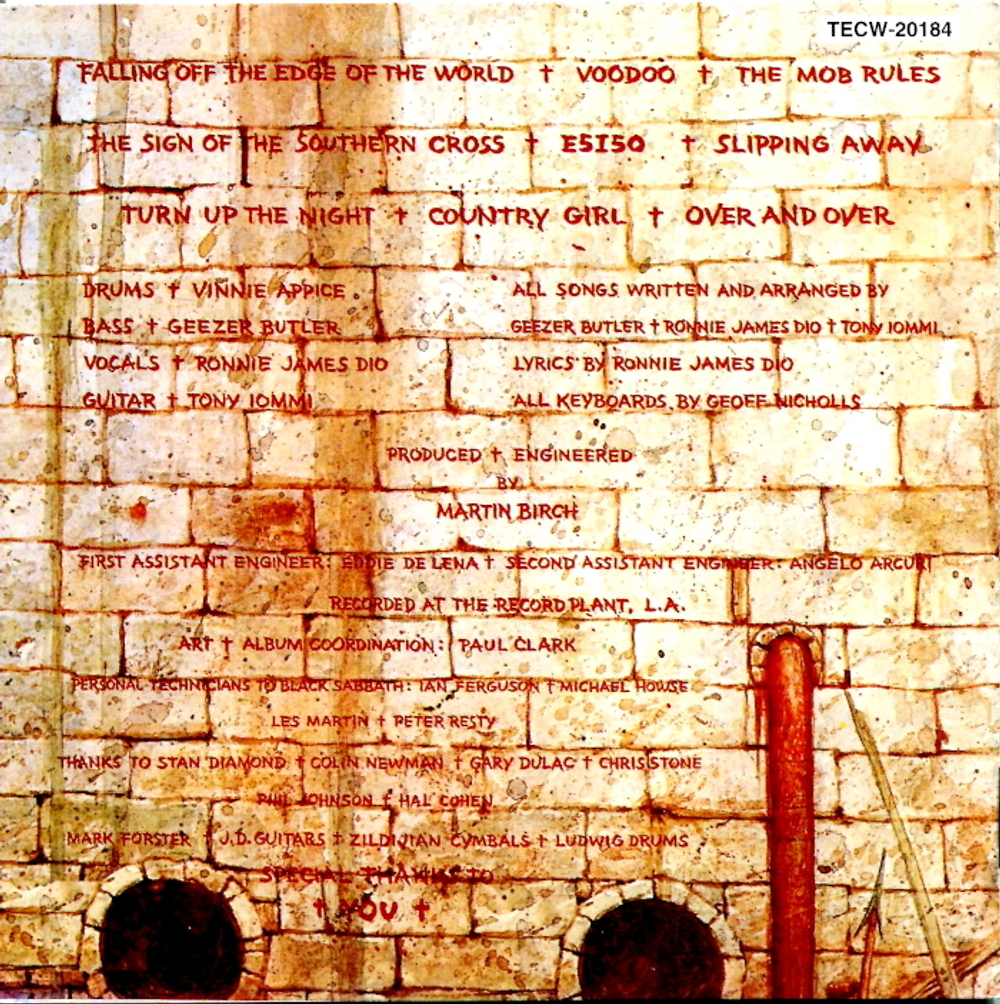 TECW-20184
FALLING OFF THE EDGE OF THE WORLD † VOODOO † THE MOB RULES
THE SIGN OF THE SOUTHERN CROSS † E5I5O † SLIPPING AWAY
TURN UP THE NIGHT † COUNTRY GIRL † OVER AND OVER
DRUMS † VINNIE APPICE
BASS † GEEZER BUTLER
VOCALS † RONNIE JAMES DIO
GUITAR † TONY IOMMI
ALL SONGS WRITTEN AND ARRANGED BY
GEEZER BUTLER † RONNIE JAMES DIO † TONY IOMMI
LYRICS BY RONNIE JAMES DIO
ALL KEYBOARDS BY GEOFF NICHOLLS
PRODUCED † ENGINEERED
BY
MARTIN BIRCH
FIRST ASSISTANT ENGINEER: EDDIE DE LENA † SECOND ASSISTANT ENGINEER: ANGELO ARCURI
RECORDED AT THE RECORD PLANT, L.A.
ART † ALBUM COORDINATION: PAUL CLARK
PERSONAL TECHNICIANS TO BLACK SABBATH: IAN FERGUSON † MICHAEL HOWSE
LES MARTIN † PETER RESTY
THANKS TO STAN DIAMOND † COLIN NEWMAN † GARY DULAC † CHRIS STONE
PHIL JOHNSON † HAL COHEN
MARK FORSTER † J.D. GUITARS † ZILDIJIAN CYMBALS † LUDWIG DRUMS
SPECIAL THANKS TO
† YOU †